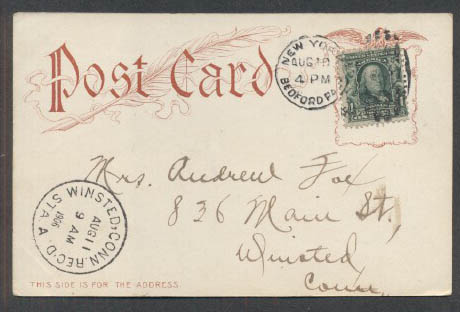 Post Card
NEW YORK
AUG 10
4 PM
BEDFORD PA
1
Mrs. Andrew Fox
836 Main St,
Winsted
Conn,
WINSTED, CONN. REC'D.
AUG 11
9 AM
1906
STA A
THIS SIDE IS FOR THE ADDRESS.